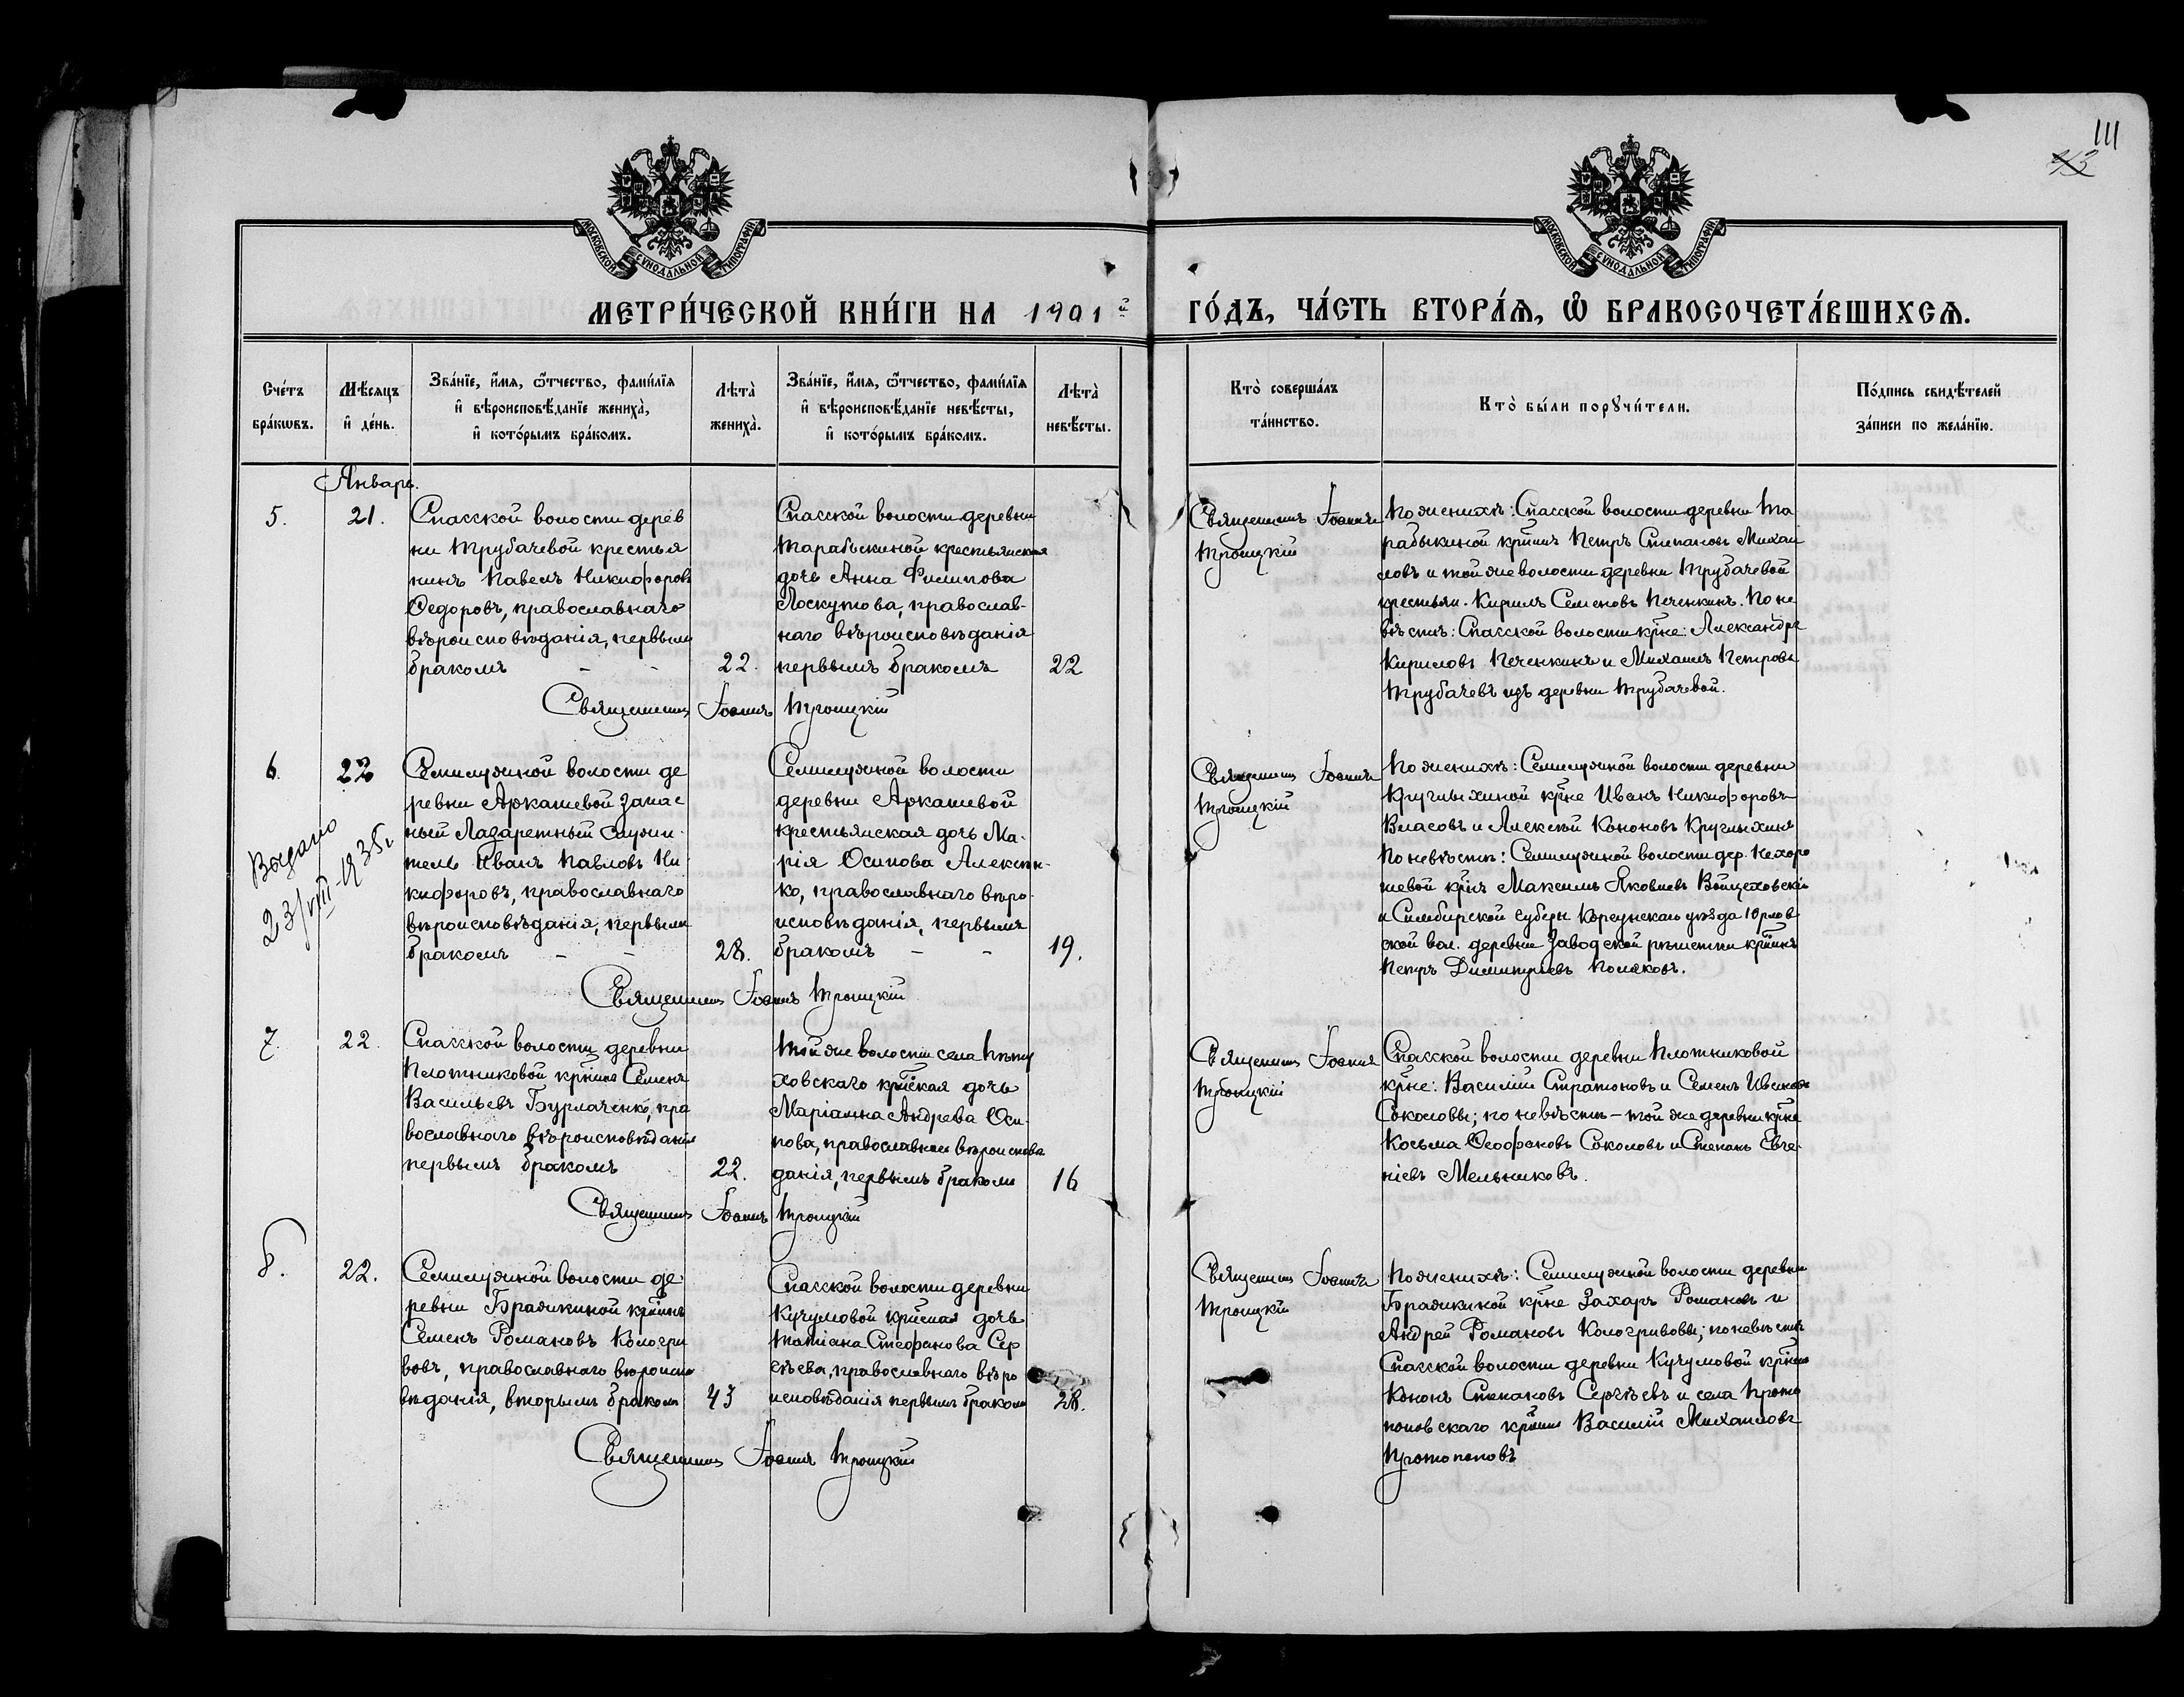 111
43
МОСКОВСКОЙ СѴНОДАЛЬНОЙ ТИПОГРАФІИ.
МОСКОВСКОЙ СѴНОДАЛЬНОЙ ТИПОГРАФІИ.
МЕТРИ́ЧЕСКОЙ КНИ́ГИ НА 1901й ГО́ДЪ, ЧА́СТЬ ВТОРА́Я, Ѡ҆ БРАКОСОЧЕТА́ВШИХСЯ.
Сче́тъ
бра́кѡвъ.
Мѣ́сяцъ
и҆ де́нь.
Зва́нїе, и҆́мя, ѻ҆́тчество, фами́лїя
и҆ вѣроисповѣ́данїе жениха̀,
и҆ кото́рымъ бра́комъ.
Лѣта̀
жениха̀.
Зва́нїе, и҆́мя, ѻ҆́тчество, фами́лїя
и҆ вѣроисповѣ́данїе невѣ́сты,
и҆ кото́рымъ бра́комъ.
Лѣта̀
невѣ́сты.
Кто̀ соверша́лъ
та́инство.
Кто̀ бы́ли порꙋчи́тели.
По́дпись свидѣ́телей
за́писи по жела́нїю.
Январь.
5.
21.
Спасской волости дерев
ни Трубачевой крестья
нинъ Павелъ Никифоровъ
Ѳедоровъ, православнаго
вѣроисповѣданія, первымъ
бракомъ - -
22.
Спасской волости деревни
Тарабыкиной крестьянская
дочь Анна Филипова
Лоскутова, православ-
наго вѣроисповѣданія
первымъ бракомъ
22
Священникъ Іоаннъ Троицкій
Священникъ Іоаннъ
Троицкій
По женихѣ: Спасской волости деревни Та
рабыкиной кр̃нинъ Петръ Степановъ Михаи
ловъ и той же волости деревни Трубачевой
крестьян. Кирилъ Семеновъ Печенкинъ. По не
вѣстѣ: Спасской волости кр̃не: Александръ
Кириловъ Печенкинъ и Михаилъ Петровъ
Трубачевъ изъ деревни Трубачевой.
6.
22
Выдано
23/VIII-1935г
Семилужной волости де
ревни Аркашевой запас
ный Лазаретный служи-
тель Иванъ Павловъ Ни
кифоровъ, православнаго
вѣроисповѣданія, первымъ
бракомъ - -
28.
Семилужной волости
деревни Аркашевой
крестьянская дочь Ма-
рія Осипова Алексѣн-
ко, православнаго вѣро-
исповѣданія, первымъ
бракомъ - -
19.
Священникъ Іоаннъ Троицкій
Священникъ Іоаннъ
Троицкій
По женихѣ: Семилужной волости деревни
Круглыхиной кр̃не Иванъ Никифоровъ
Власовъ и Алексѣй Кононовъ Круглыхинъ
По невѣстѣ: Семилужной волости дер. Нехоро
шевой кр̃нъ Максимъ Яковлевъ Войцеховскій
и Симбирской губерн Корсунскаго уѣзда Юрлов
ской вол. деревни Заводской рѣшетки кр̃нинъ
Петръ Димитріевъ Поляковъ.
7.
22.
Спасской волости деревни
Плотниковой кр̃нинъ Семенъ
Васильевъ Бурлаченко, пра
вославнаго вѣроисповѣданія
первымъ бракомъ
22.
Той же волости села Пѣту
ховскаго кр̃нская дочь
Маріанна Андреева Оси-
пова, православнаго вѣроисповѣ
данія, первымъ бракомъ
16
Священникъ Іоаннъ Троицкій
Священникъ Іоаннъ
Троицкій
Спасской волости деревни Плотниковой
кр̃не: Василій Стратоновъ и Семенъ Ивановъ
Соколовы; по невѣстѣ - той же деревни кр̃не
Косьма Ѳеофановъ Соколовъ и Степанъ Евге-
ніевъ Мельниковъ.
8.
22.
Семилужной волости де-
ревни Бражкиной кр̃нинъ
Семенъ Романовъ Кологри
вовъ, православнаго вѣроиспо
вѣданія, вторымъ бракомъ
43
Спасской волости деревни
Кучумовой кр̃нская дочь
Татіана Стефанова Сер
гѣева, православнаго вѣро
исповѣданія первымъ бракомъ
28.
Священникъ Іоаннъ Троицкій
Священникъ Іоаннъ
Троицкій
По женихѣ: Семилужной волости деревни
Бражкиной кр̃не Захаръ Романовъ и
Андрей Романовъ Кологривовы; по невѣстѣ
Спасской волости деревни Кучумовой кр̃нинъ
Кононъ Степановъ Сергѣевъ и села Прото
поповскаго кр̃нинъ Василій Михаиловъ
Протопоповъ